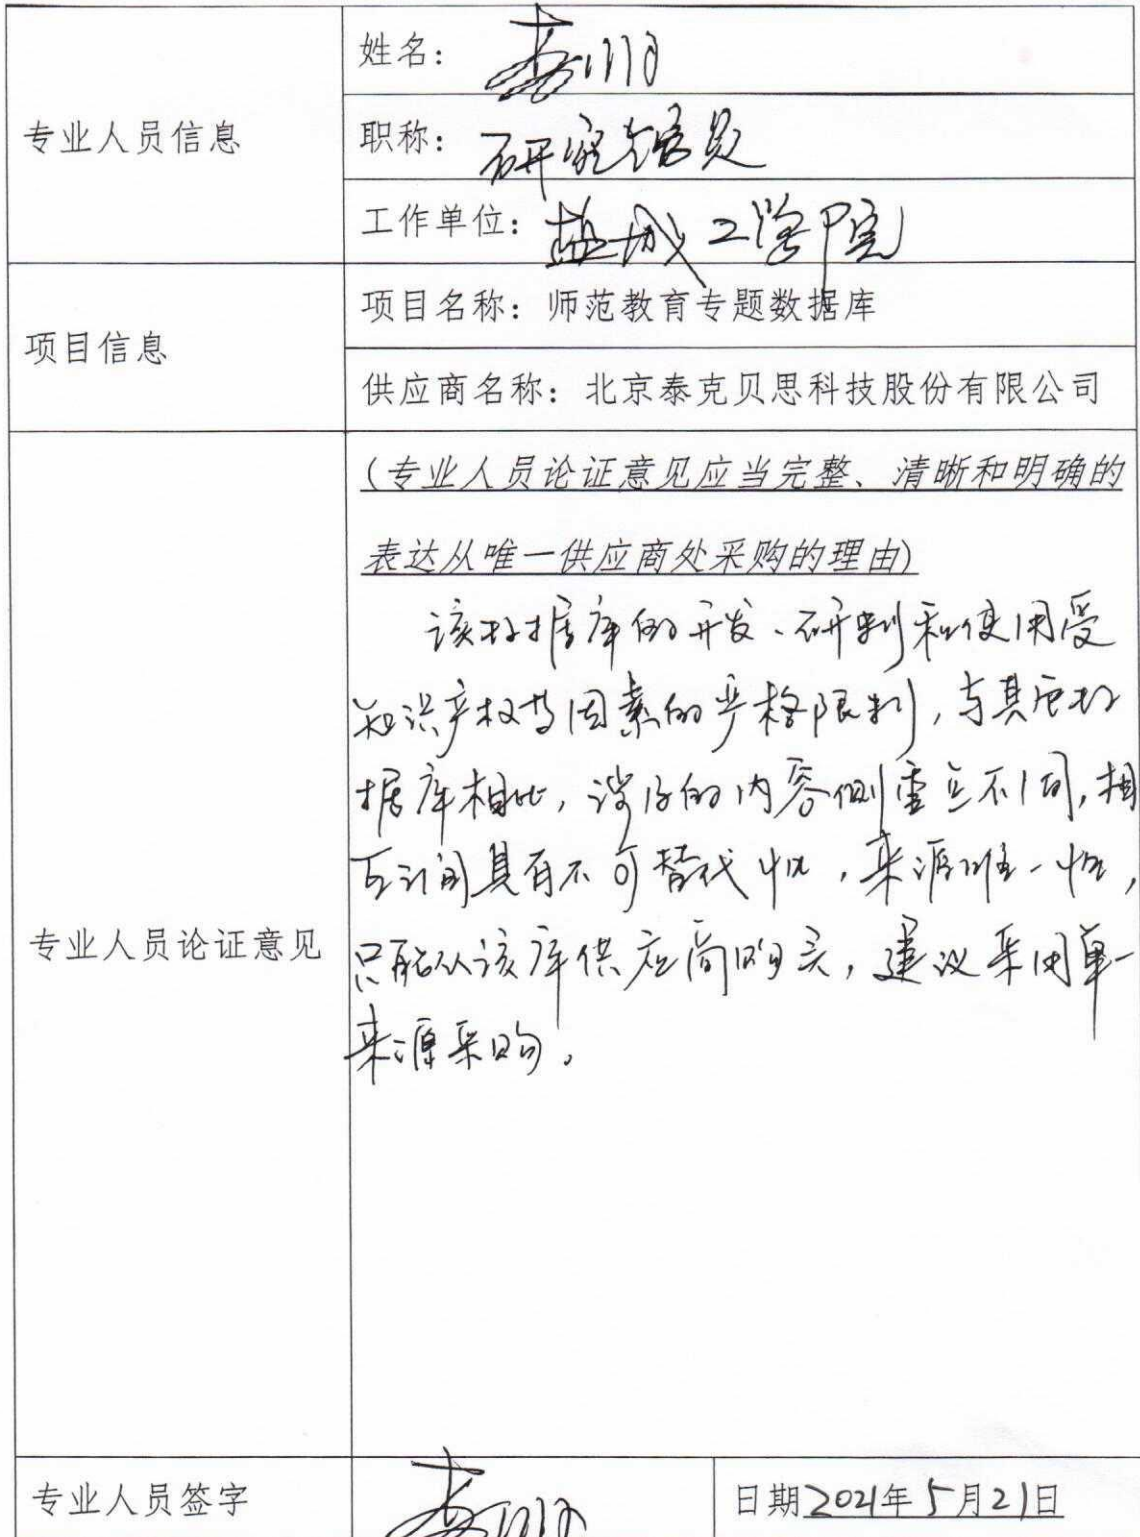 专业人员信息
姓名：李明
职称：研究馆员
工作单位：盐城工学院
项目信息
项目名称：师范教育专题数据库
供应商名称：北京泰克贝思科技股份有限公司
专业人员论证意见
(专业人员论证意见应当完整、清晰和明确的
表达从唯一供应商处采购的理由)
该数据库的开发、研制和使用受
知识产权等因素的严格限制，与其它数
据库相比，涉及的内容侧重点不同，相
互之间具有不可替代性，来源唯一性，
只能从该库供应商购买，建议采用单一
来源采购。
专业人员签字
日期2021年5月21日